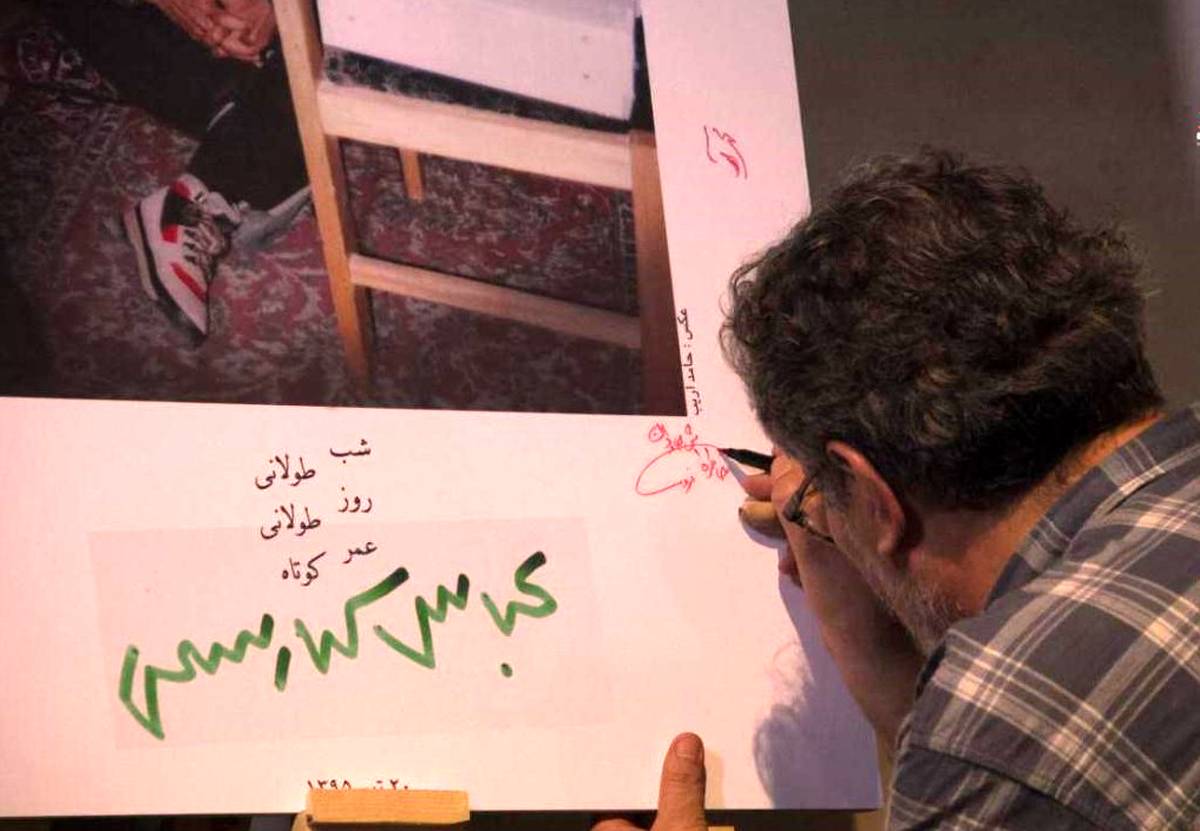 عکس : حامد اریب
شب
طولانی
روز
طولانی
عمر
کوتاه
عباس کیارستمی
۲۰ تیر ۱۳۹۵